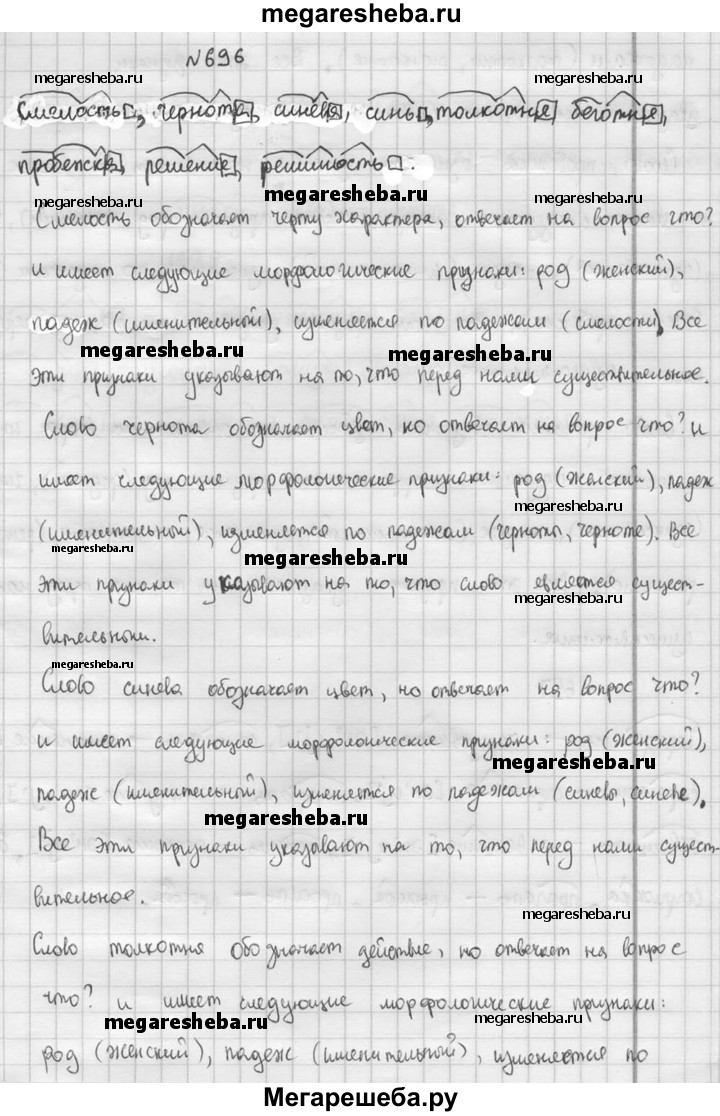 megaresheba.ru
№696
megaresheba.ru megaresheba.ru
смелость, чернота, синева, синь, толкотня, беготня,
пробежка, решение, решимость.
megaresheba.ru
Смелость обозначает черту характера, отвечает на вопрос что?
и имеет следующие морфологические признаки: род (женский),
падеж (именительный), изменяется по падежам (смелости). Все
megaresheba.ru megaresheba.ru
эти признаки указывают на то, что перед нами существительное.
Слово чернота обозначает цвет, но отвечает на вопрос что? и
имеет следующие морфологические признаки: род (женский), падеж
megaresheba.ru
(именительный), изменяется по падежам (черноты, черноте). Все
megaresheba.ru megaresheba.ru
эти признаки указывают на то, что слово является сущест-
megaresheba.ru
вительным.
megaresheba.ru
Слово синева обозначает цвет, но отвечает на вопрос что?
и имеет следующие морфологические признаки: род (женский),
megaresheba.ru
падеж (именительный), изменяется по падежам (синевы, синеве).
megaresheba.ru
Все эти признаки указывают на то, что перед нами сущест-
вительное.
megaresheba.ru
Слово толкотня обозначает действие, но отвечает на вопрос
что? и имеет следующие морфологические признаки:
megaresheba.ru megaresheba.ru
род (женский), падеж (именительный), изменяется по
Мегарешеба.ру